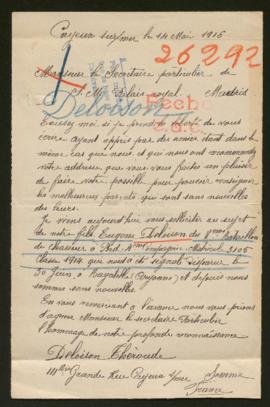 Cayeux sur/mer le 14 Mai 1916
26292
Monsieur le Secrétaire particulier de
S. M. Palais royal. Madrid
Deloison
Fecho
Excusez moi si je prends la liberté de vous
écrire ayant appris par des amies étant dans le
même cas que nous et qui nous ont recommandé
votre addresse que vous vous faites un plaisir
de faire votre possible pour pouvoir renseigner
les malheureux parents qui sont sans nouvelles
des leurs.
Je viens aujourd'hui vous solliciter au sujet
de notre fils Eugène Deloison du Bataillon
de chasseur à Pied Compagnie Matricule
Classe 1914 qui nous a été signalé disparue le
30 Juin, à Bagatelle (Argonne) et depuis nous
sommes sans nouvelles.
En vous remerciant à l'avance nous vous prions
d'agréer Monsieur le secrétaire Particulier
l'hommage de notre profonde reconnaissance
Deloison Théroude
Grande Rue Cayeux s/mer
Somme
France